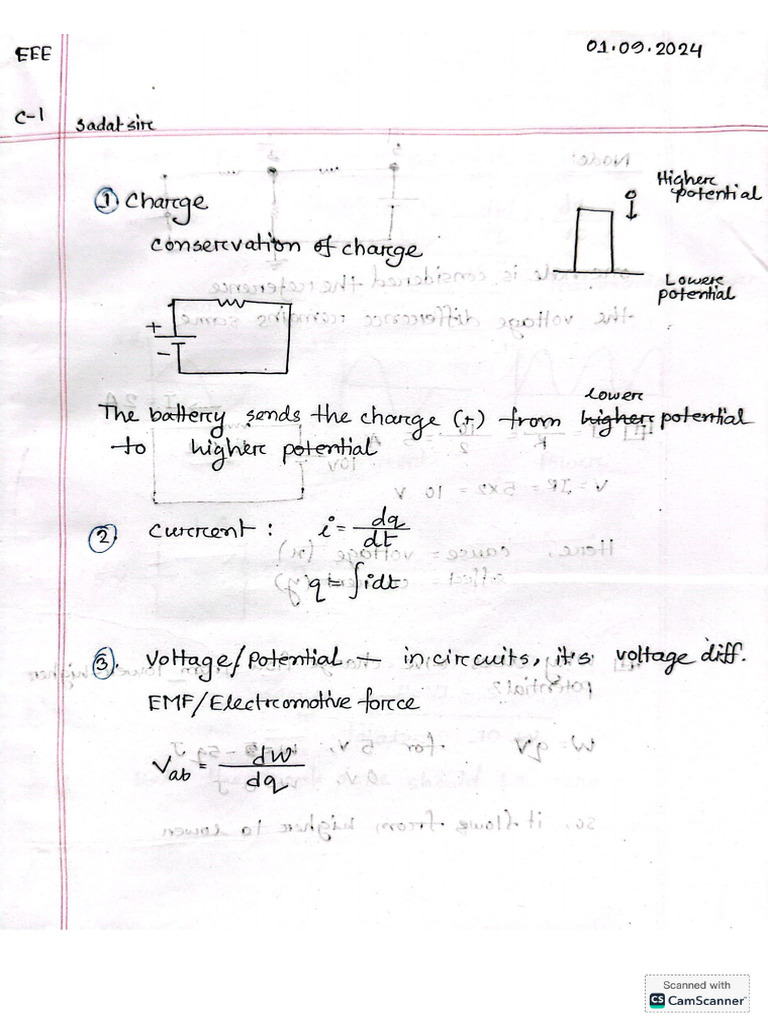 EEE
01.09.2024
C-1
Sadat sir
① Charge
Conservation of charge
Higher
potential
Lower
potential
+
-
lower
The battery sends the charge (+) from higher potential
to higher potential
②. Current : i = dq/dt
q = ∫idt
③. Voltage/Potential → in circuits, it's voltage diff.
EMF/Electromotive force
Vab = dw/dq
Scanned with
CS CamScanner